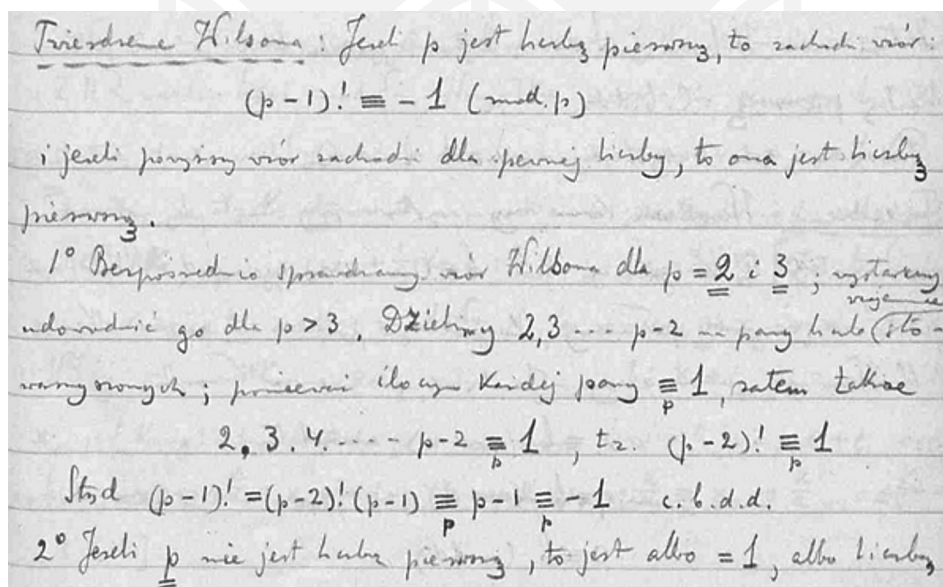 Twierdzenie Wilsona: Jeżeli p jest liczbą pierwszą, to zachodzi wzór:
(p-1)! ≡ -1 (mod. p)
i jeżeli powyższy wzór zachodzi dla pewnej liczby, to ona jest liczbą
pierwszą.
1° Bezpośrednio sprawdzamy wzór Wilsona dla p = 2 i 3, wystarczy
wzajemnie
udowodnić go dla p > 3. Dzielimy 2,3 ... p-2 na pary liczb (sto-
warzyszonych; ponieważ iloczyn każdej pary ≡ₚ 1, zatem także
2. 3. 4. - - - p-2 ≡ₚ 1, tz. (p-2)! ≡ₚ 1
Stąd (p-1)! = (p-2)! (p-1) ≡ₚ p-1 ≡ₚ -1 c.b.d.d.
2° Jeżeli p nie jest liczbą pierwszą, to jest albo = 1, albo liczbą